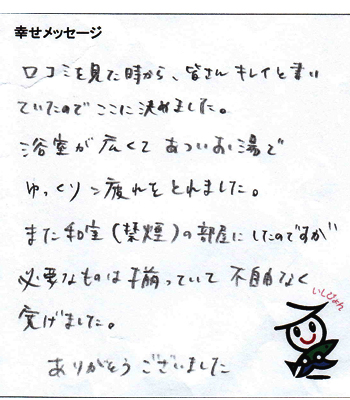 幸せメッセージ
口コミを見た時から、皆さんキレイと書い
ていたのでここに決めました。
浴室が広くてあついお湯で
ゆっくりつ疲れをとれました。
また和室(禁煙)の部屋にしたのですが
必要なものは揃っていて不自由なく
いしぴょん
げました。
ありがとうございました